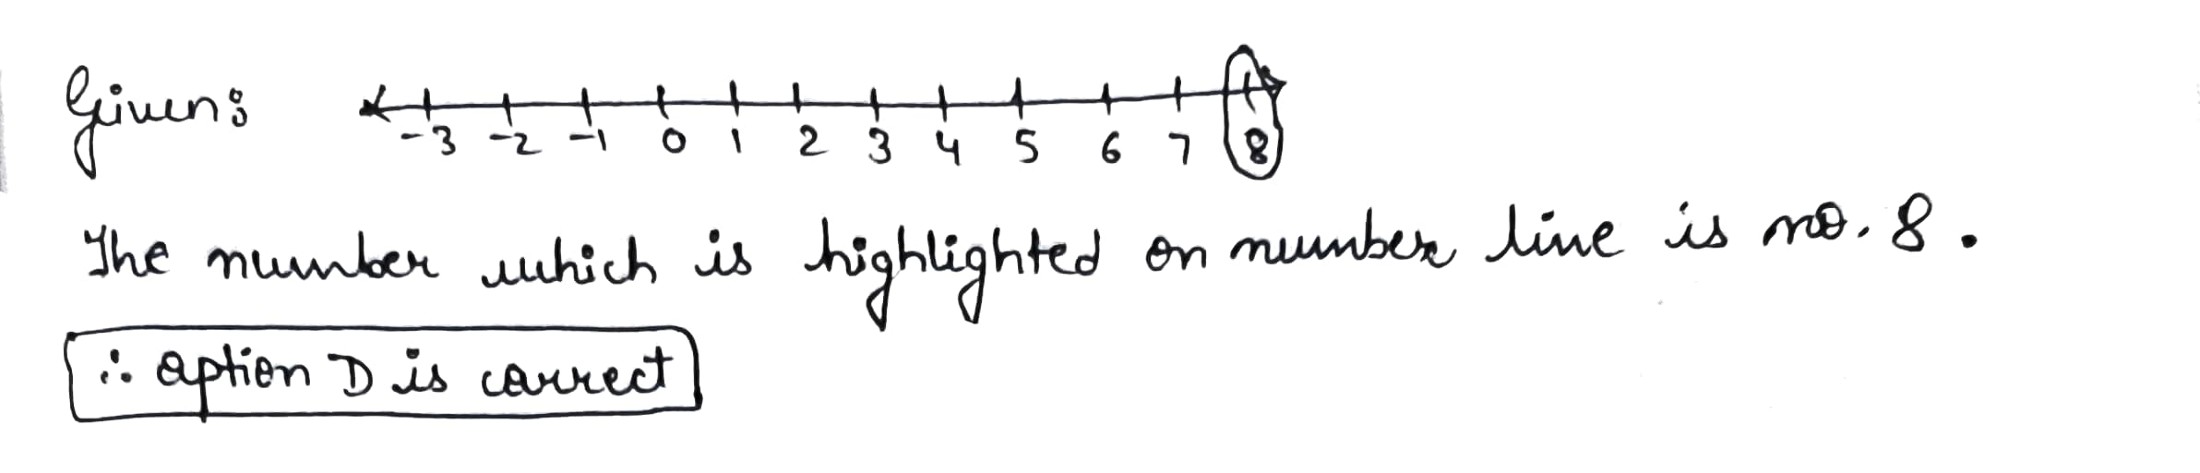 Given:
-3 -2 -1 0 1 2 3 4 5 6 7 8
The number which is highlighted on number line is no. 8.
∴ option D is correct